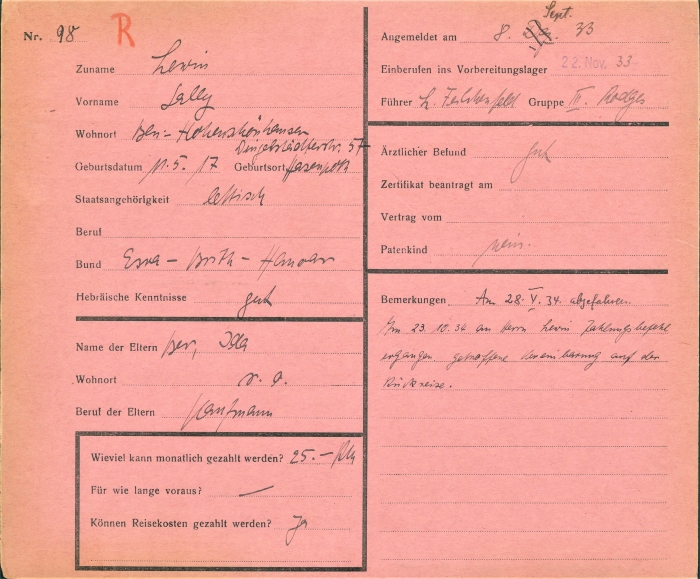 Nr. 98 R
Zuname Lewin
Vorname Sally
Wohnort Bln – Hohenschönhausen
Dingelstädterstr. 57
Geburtsdatum 11.5.17 Geburtsort Hasenpoth
Staatsangehörigkeit lettisch
Beruf
Bund Esra – Brith – Hanoar
Hebräische Kenntnisse gut
Name der Eltern Ber, Ida
Wohnort s. o.
Beruf der Eltern Kaufmann
Wieviel kann monatlich gezahlt werden? 25.– RM
Für wie lange voraus? —
Können Reisekosten gezahlt werden? ja
Sept.
Angemeldet am 8. 33
Einberufen ins Vorbereitungslager 22. Nov. 33
Führer L. Gruppe III. Rodges
Ärztlicher Befund gut
Zertifikat beantragt am
Vertrag vom
Patenkind nein.
Bemerkungen Am 28. V. 34. abgefahren.
Am 23.10.34 an Herrn Lewin Zahlungsbefehl
ergangen. getroffene Vereinbarung auf der
Rückreise.